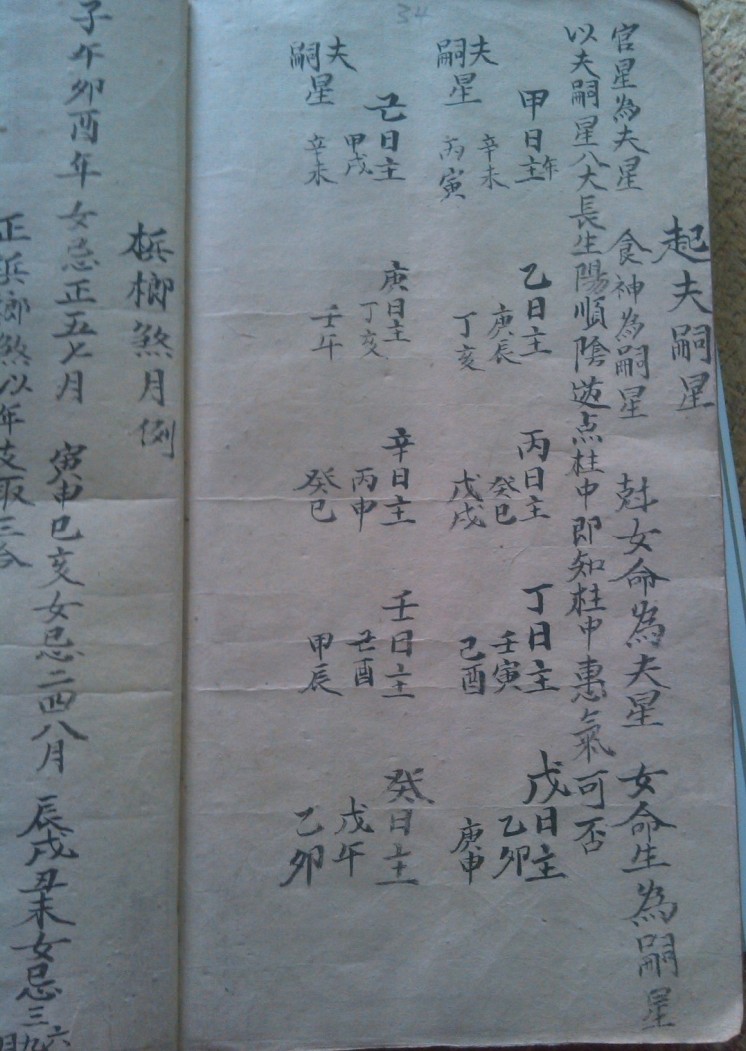 34
起夫嗣星
官星為夫星　食神為嗣星　尅女命為夫星　女命生為嗣星
以夫嗣星八大長生陽順陰逆点柱中即知柱中惠氣可否
甲日主年　乙日主　丙日主　丁日主　戊日主
夫　辛未　庚辰　癸巳　壬寅　乙卯
嗣星　丙寅　丁亥　戊戌　己酉　庚申
己日主　庚日主　辛日主　壬日主　癸日主
夫　甲戌　丁亥　丙申　己酉　戊午
嗣星　辛未　壬午　癸巳　甲辰　乙卯
梹榔煞月例
子午卯酉年女忌正五七月　寅申巳亥女忌二四八月　辰戌丑未女忌三六九月
正梹榔煞以年支取三合